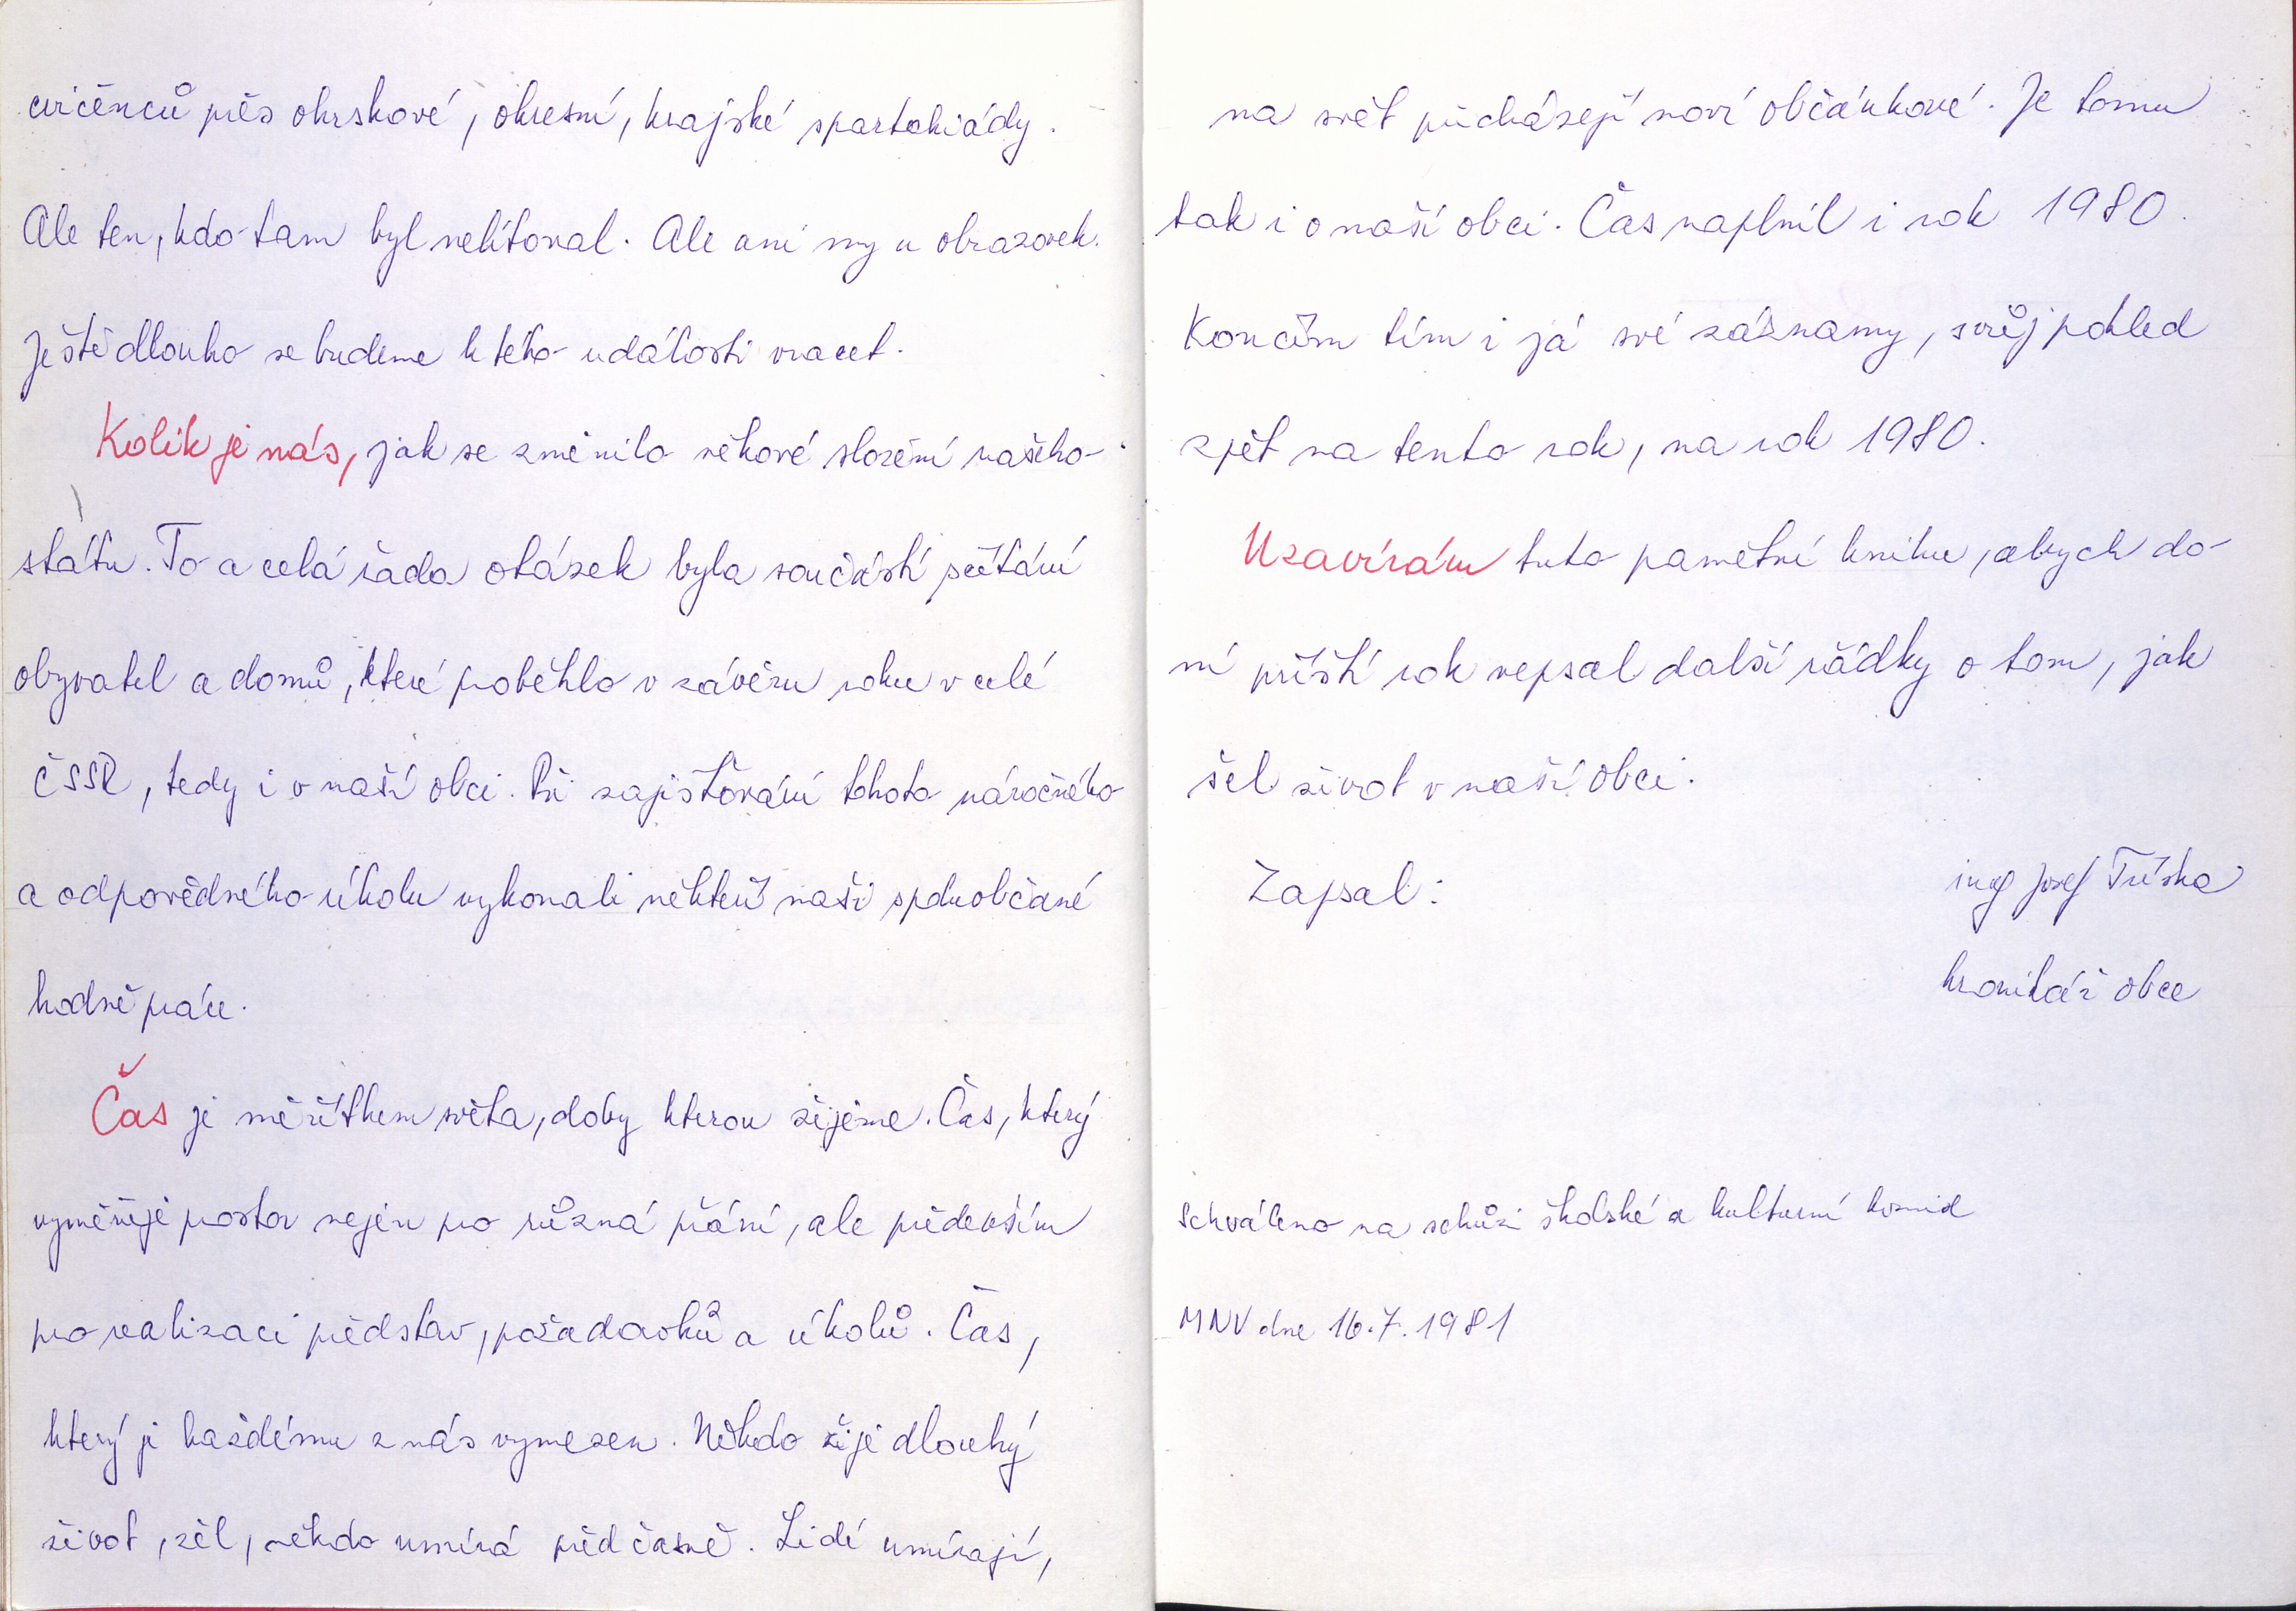 cvičenců přes okrskové, okresní, krajské spartakiády.
Ale ten, kdo tam byl nelitoval. Ale ani my u obrazovek.
Ještě dlouho se budeme k této události vracet.
Kolik je nás, jak se změnilo věkové složení našeho
státu. To a celá řada otázek byla součástí sčítání
obyvatel a domů, které proběhlo v závěru roku v celé
ČSSR, tedy i v naší obci. Při zajišťování tohoto náročného
a odpovědného úkolu vykonali někteří naši spoluobčané
hodně práce.
Čas je měřítkem světa, doby kterou žijeme. Čas, který
vyměřuje prostor nejen pro různá přání, ale především
pro realizaci představ, požadavků a úkolů. Čas,
který je každému z nás vymezen. Někdo žije dlouhý
život, žel, někdo umírá předčasně. Lidé umírají,
na svět přicházejí noví občánkové. Je tomu
tak i v naší obci. Čas naplnil i rok 1980.
Končím tím i já své záznamy, svůj pohled
zpět na tento rok, na rok 1980.
Uzavírám tuto pamětní knihu, abych do
ní příští rok vepsal další řádky o tom, jak
šel život v naší obci.
Zapsal: ing Josef Tříska
kronikář obce
Schváleno na schůzi školské a kulturní komise
MNV dne 16.7.1981